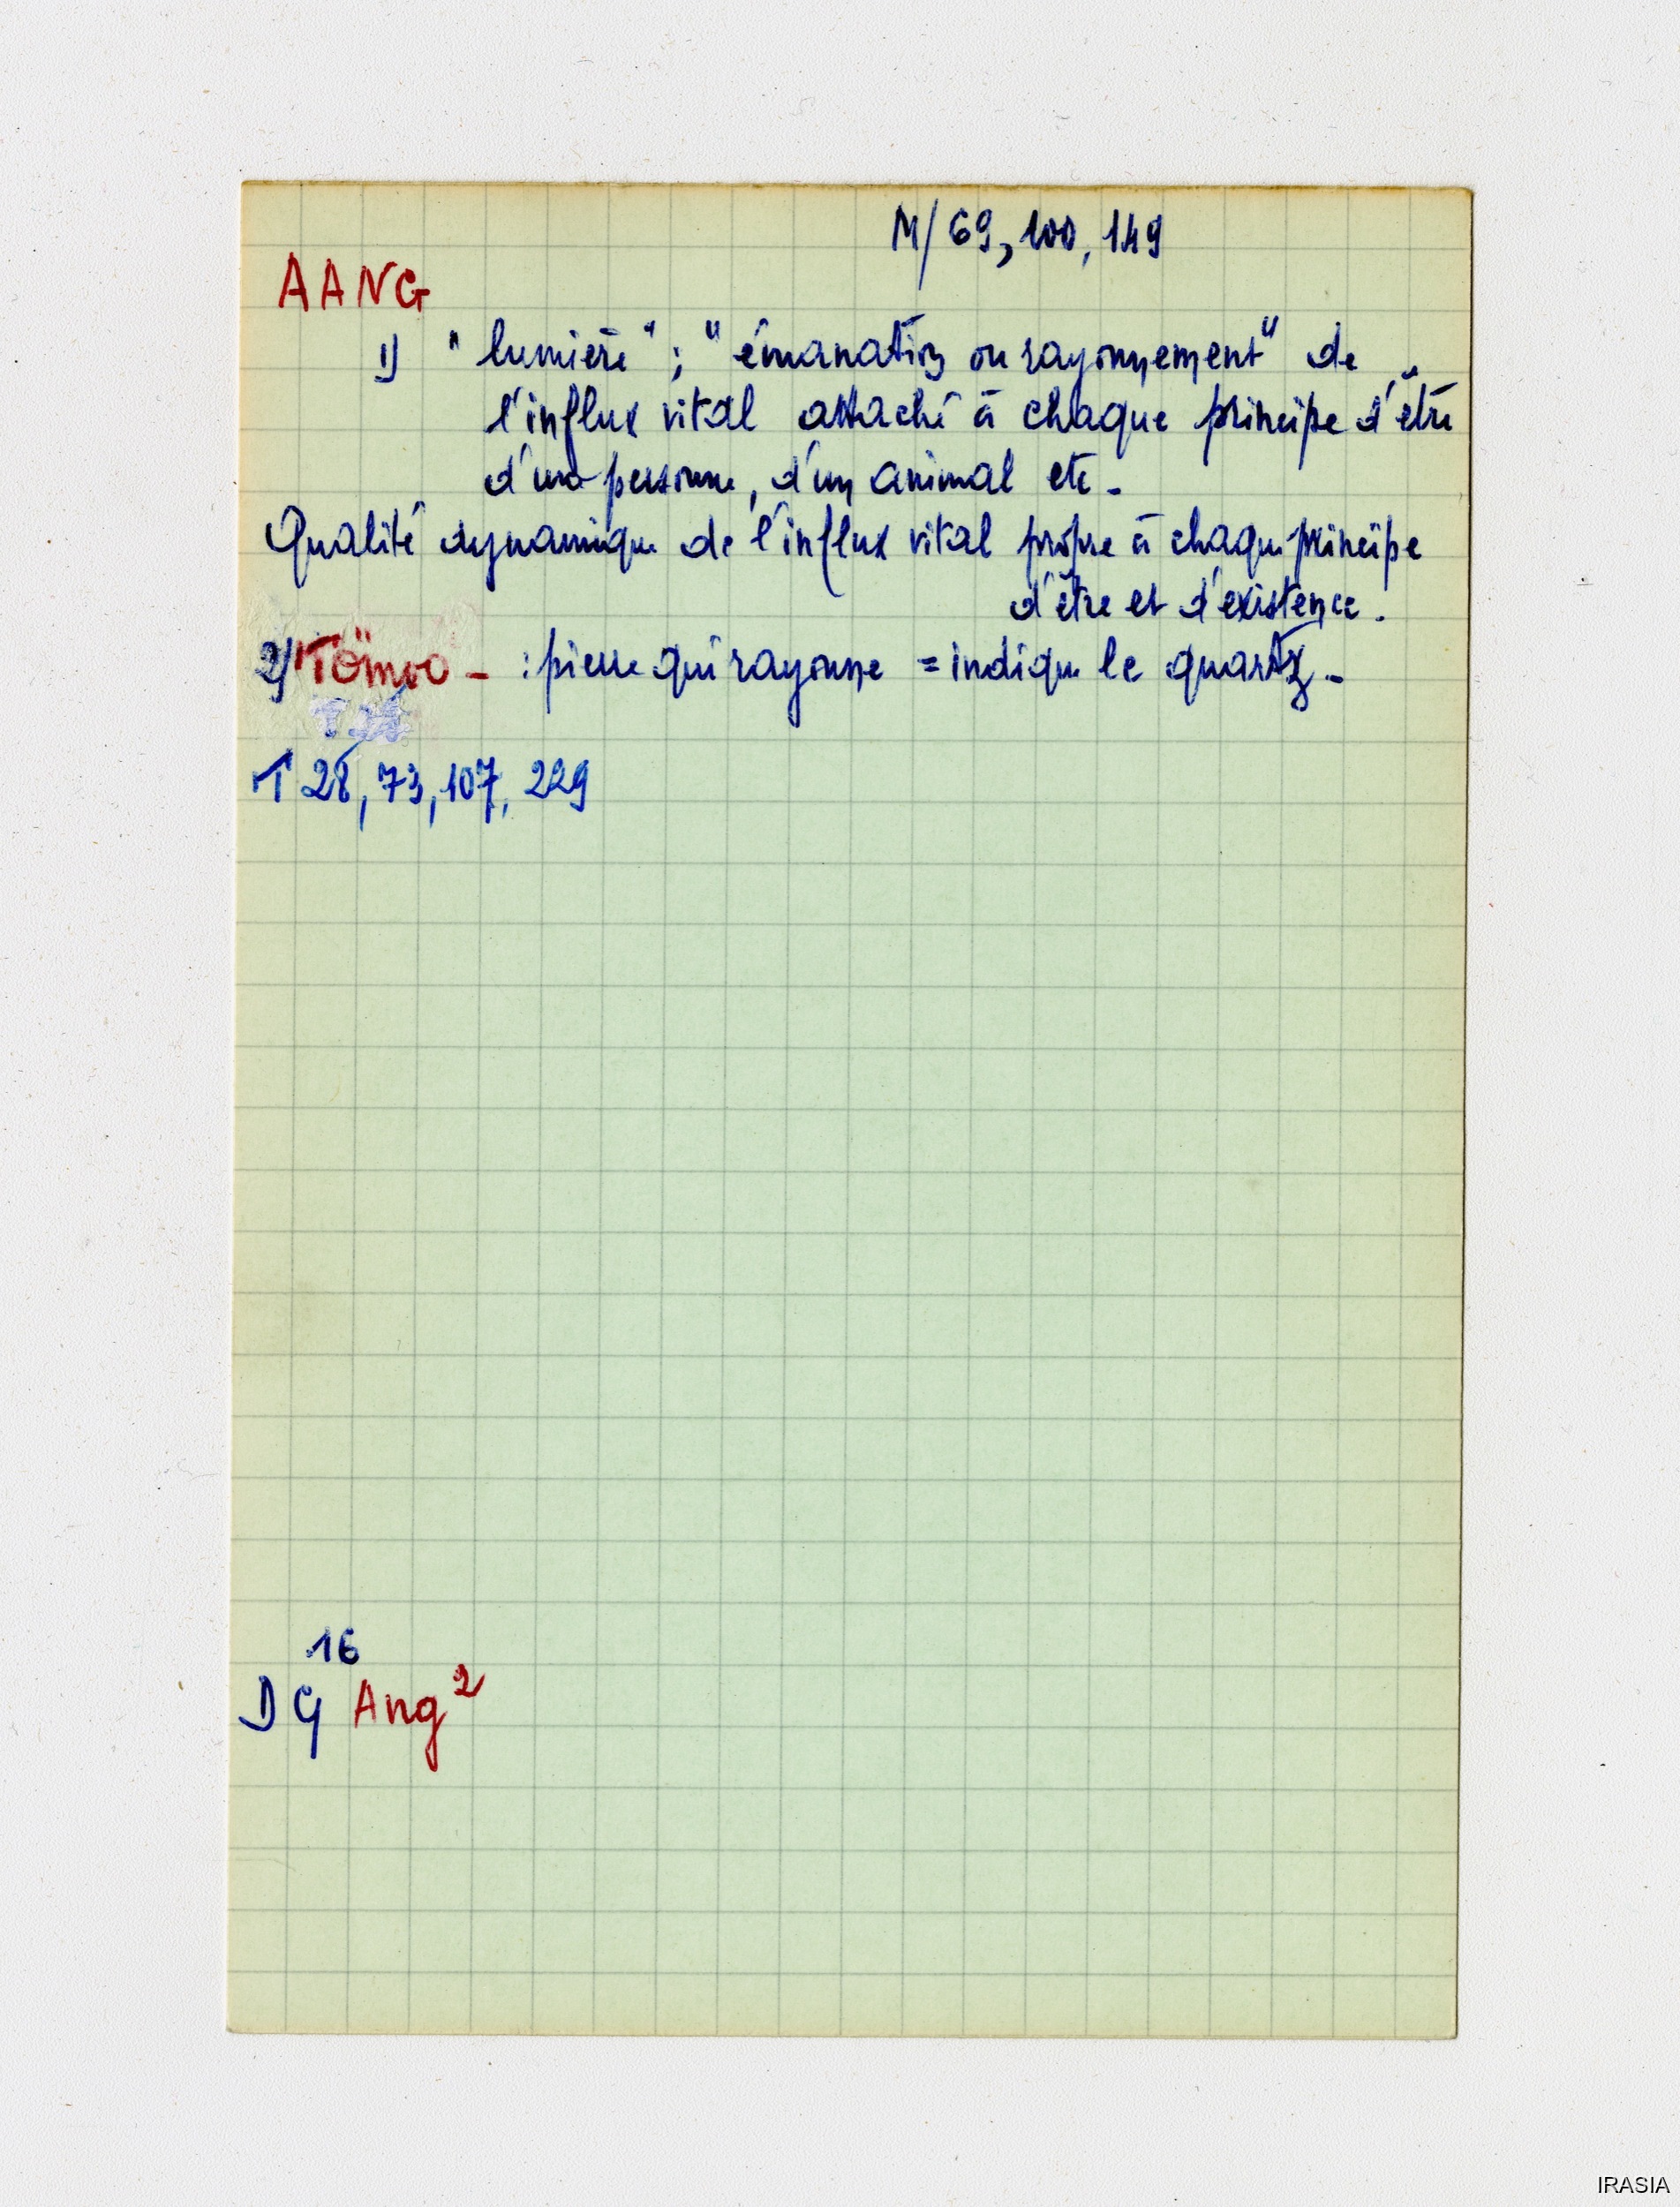 M/ 69, 100, 149
AANG
1) "lumière" ; "émanation ou rayonnement" de
l'influx vital attaché à chaque principe d'être
d'une personne, d'un animal etc.
Qualité dynamique de l'influx vital propre à chaque principe
d'être et d'existence.
2) Tömoo - : pierre qui rayonne = indique le quartz -
T 28, 73, 107, 229
16
DG Ang²
IRASIA